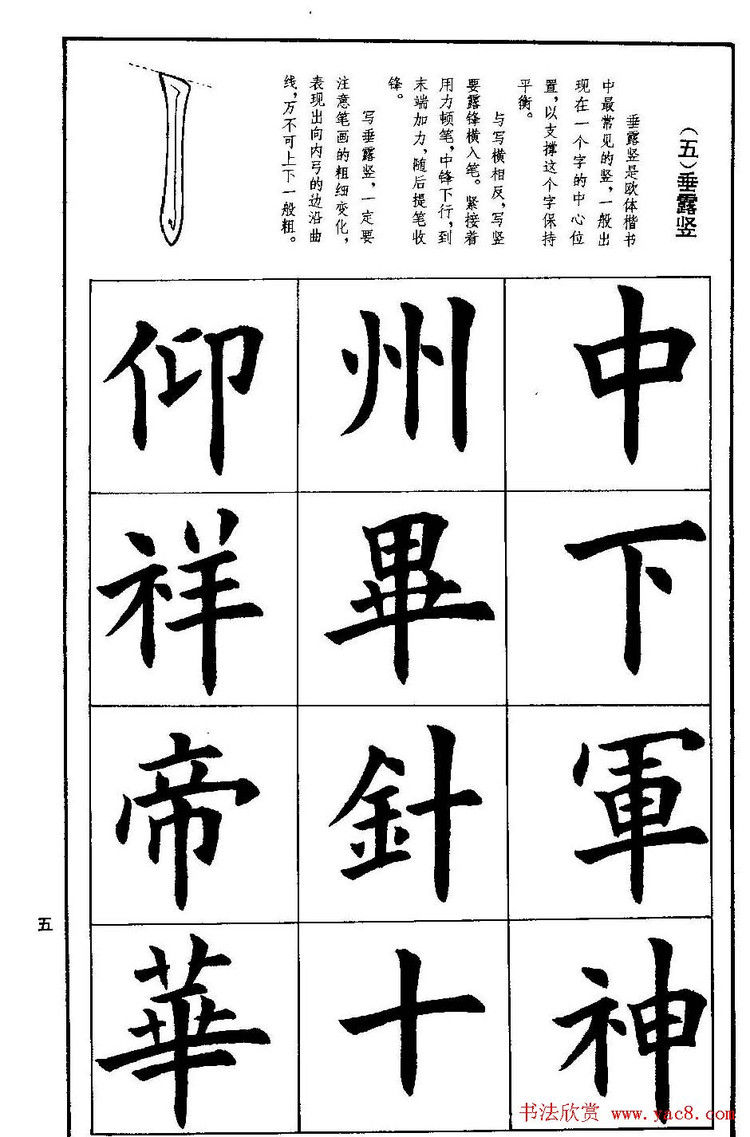 （五）垂露竖
垂露竖是欧体楷书
中最常见的竖，一般出
现在一个字的中心位
置，以支撑这个字保持
平衡。
与写横相反，写竖
要露锋横入笔。紧接着
用力顿笔，中锋下行，到
末端加力，随后提笔收
锋。
写垂露竖，一定要
注意笔画的粗细变化，
表现出向内弓的边沿曲
线，万不可上下一般粗。
中
下
軍
神
州
畢
針
十
仰
祥
帝
華
五
书法欣赏 www.yac8.com